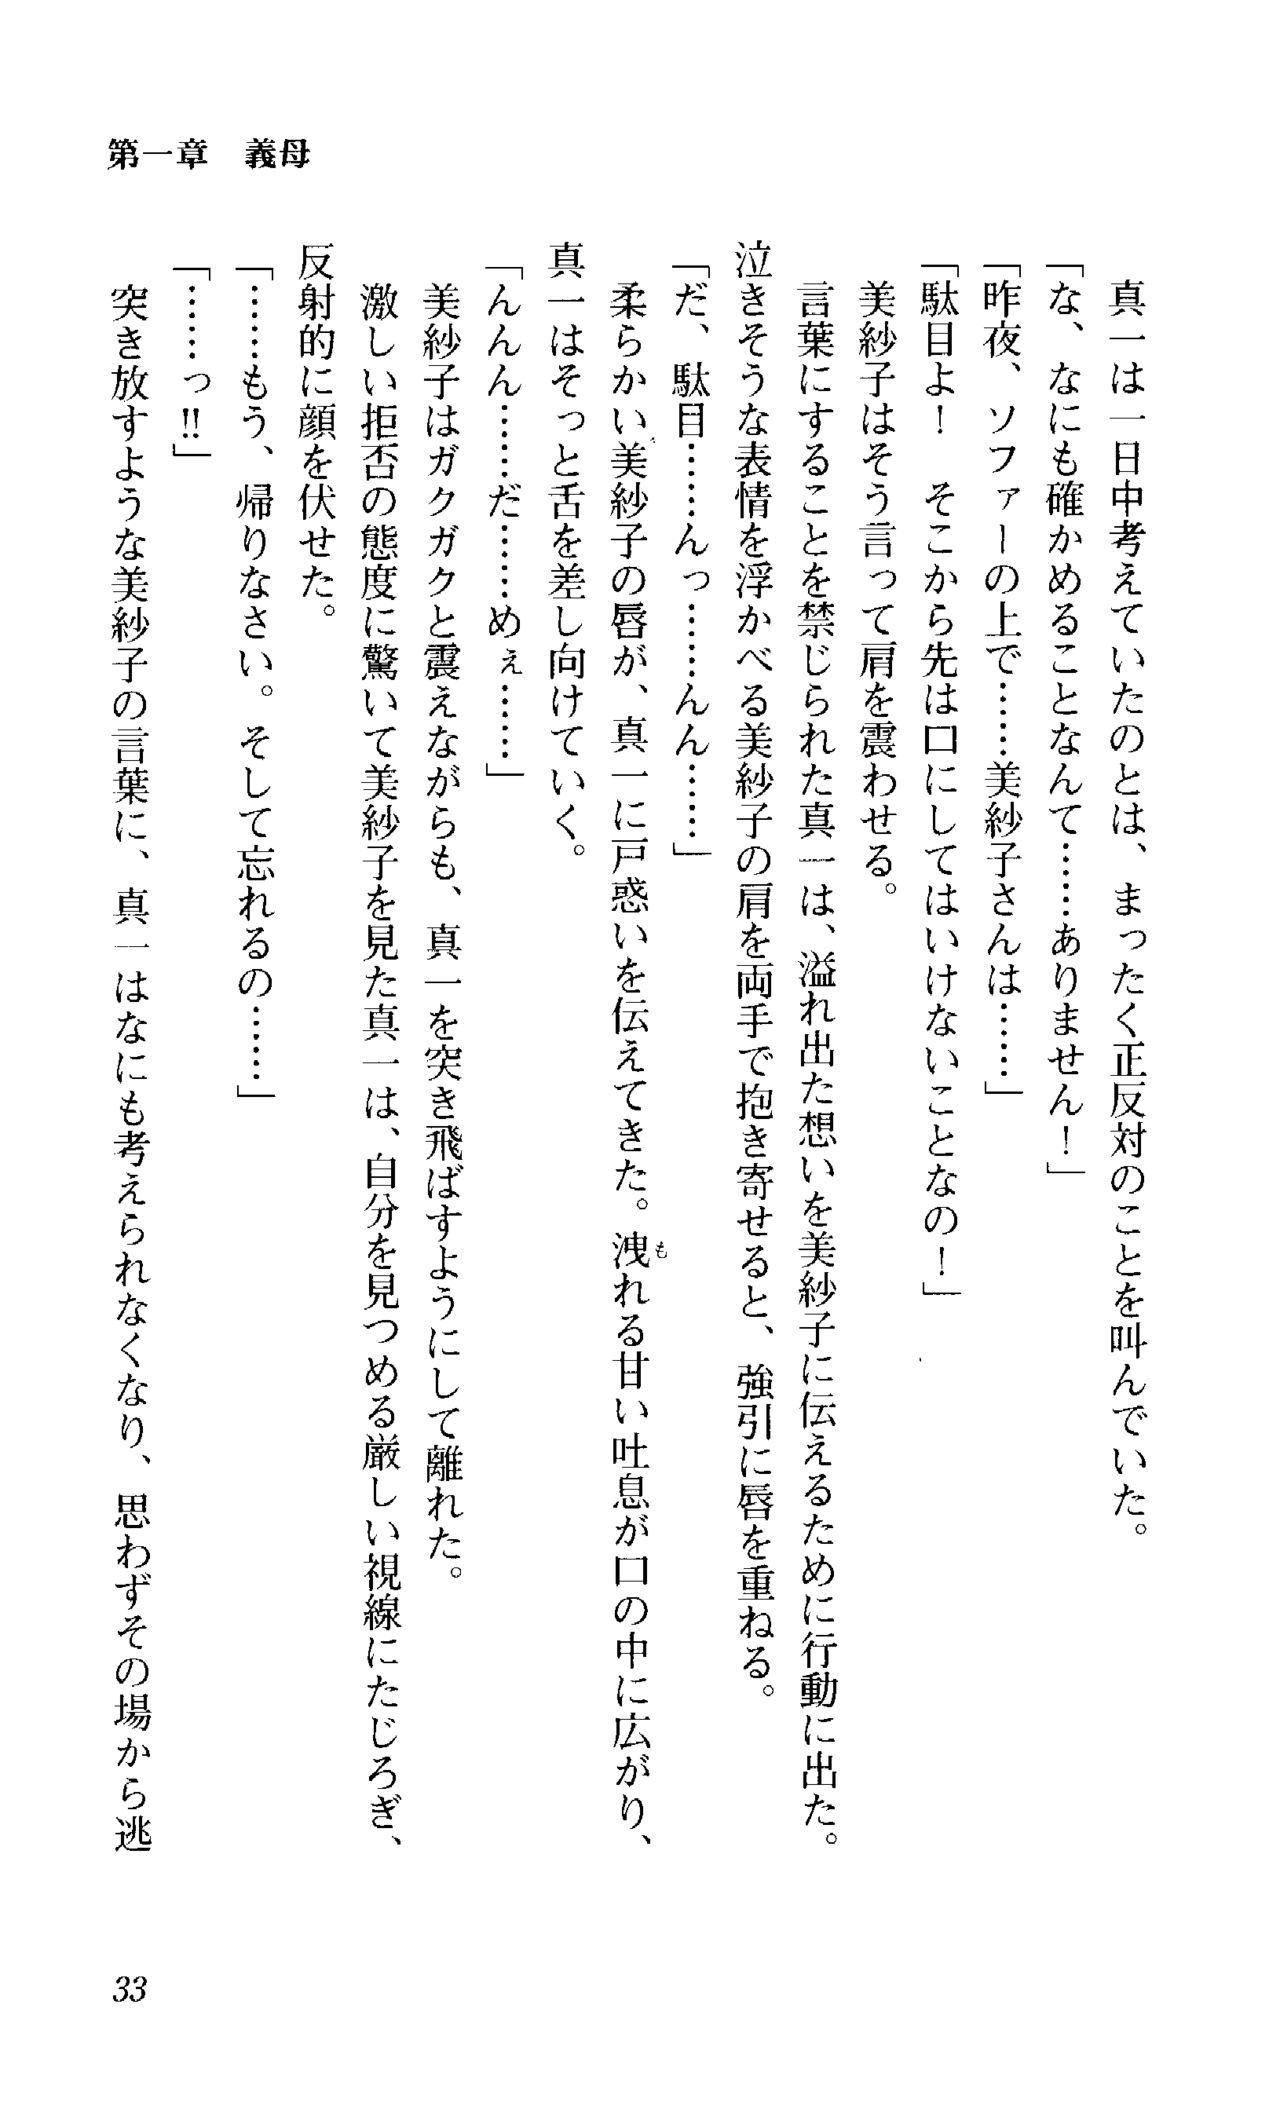 第一章　義母
真一は一日中考えていたのとは、まったく正反対のことを叫んでいた。
「な、なにも確かめることなんて……ありません！」
「昨夜、ソファーの上で……美紗子さんは……」
「駄目よ！　そこから先は口にしてはいけないことなの！」
美紗子はそう言って肩を震わせる。
言葉にすることを禁じられた真一は、溢れ出た想いを美紗子に伝えるために行動に出た。
泣きそうな表情を浮かべる美紗子の肩を両手で抱き寄せると、強引に唇を重ねる。
「だ、駄目……んっ……んん……」
柔らかい美紗子の唇が、真一に戸惑いを伝えてきた。洩れる甘い吐息が口の中に広がり、
も
真一はそっと舌を差し向けていく。
「んんん……だ……めぇ……」
美紗子はガクガクと震えながらも、真一を突き飛ばすようにして離れた。
激しい拒否の態度に驚いて美紗子を見た真一は、自分を見つめる厳しい視線にたじろぎ、
反射的に顔を伏せた。
「……もう、帰りなさい。そして忘れるの……」
「……っ!!」
突き放すような美紗子の言葉に、真一はなにも考えられなくなり、思わずその場から逃
33